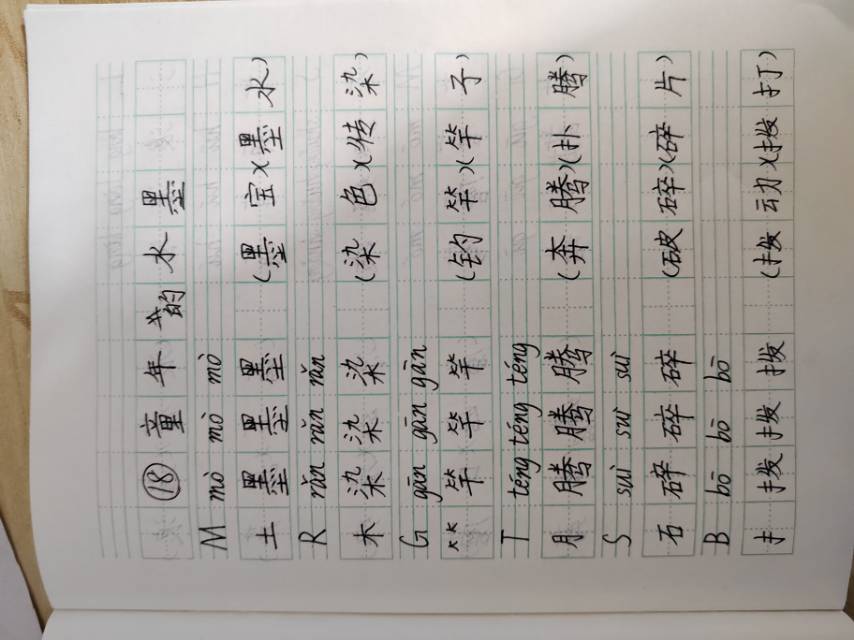 ⑱ 童年的水墨
M mò mò mò
土 墨 墨 墨 (墨宝)(墨水)
R rǎn rǎn rǎn
木 染 染 染 (染色)(传染)
G gān gān gān
⺮ 竿 竿 竿 (钓竿)(竿子)
T téng téng téng
月 腾 腾 腾 (奔腾)(扑腾)
S suì suì suì
石 碎 碎 碎 (破碎)(碎片)
B bō bō bō
扌 拨 拨 拨 (拨动)(拨打)